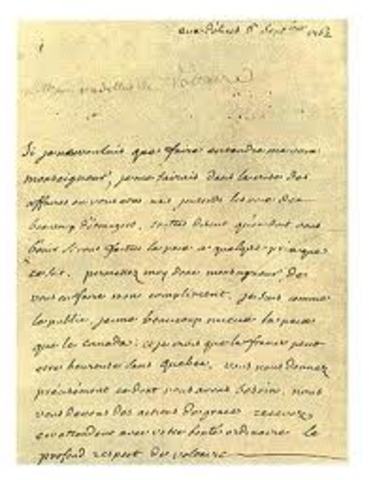 aux délices 6e septembre 1762
Voltaire
Si je ne voulais que faire entendre ma voix
monseigneur, je me tairais dans la crise des
affaires ou vous etes mais j'entends les voix de
beaucoup d'étrangers, toutes disent qu'on doit vous
bénir si vous faittes la paix a quelque prix que
ce soit. permettez moy donc monseigneur, de
vous en faire mon compliment. je suis comme
le public, j'aime beaucoup mieux la paix
que le canada: et je crois que la france peut
etre heureuse sans Quebec. vous nous donnez
précisément ce dont nous avons besoin. nous
vous devons des actions de graces recevez
en attendant avec votre bonté ordinaire le
profond respect de voltaire